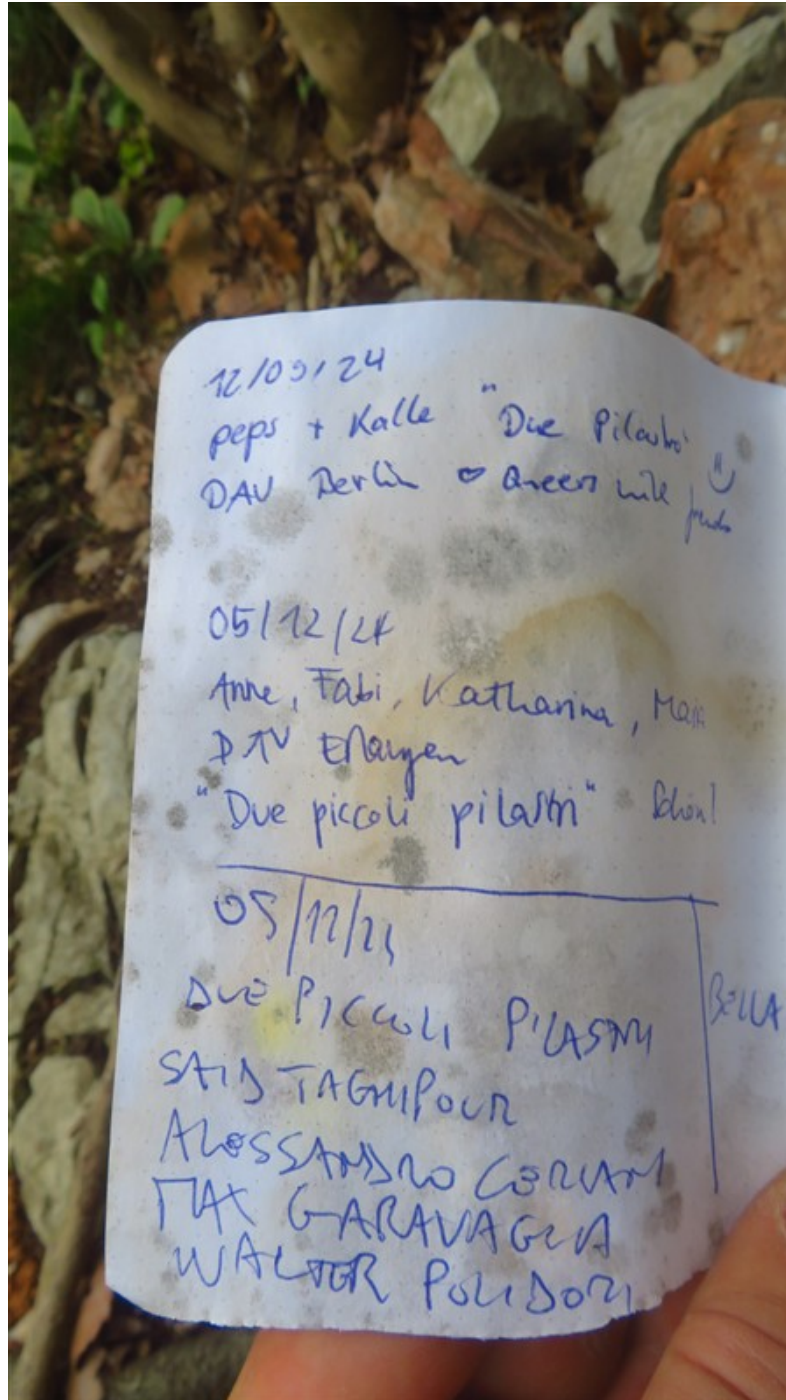 12/09/24
peps + Kalle "Due Pilastri"
DAV Berlin ♡ Queers mit
05/12/24
Anne, Fabi, Katharina,
DAV Erlangen
"Due piccoli pilastri" Schön!
05/12/24
DUE PICCOLI PILASTRI
BELLA
SAID TAGHIPOUR
ALESSANDRO CERIANI
MAX GARAVAGLIA
WALTER POLIDORI